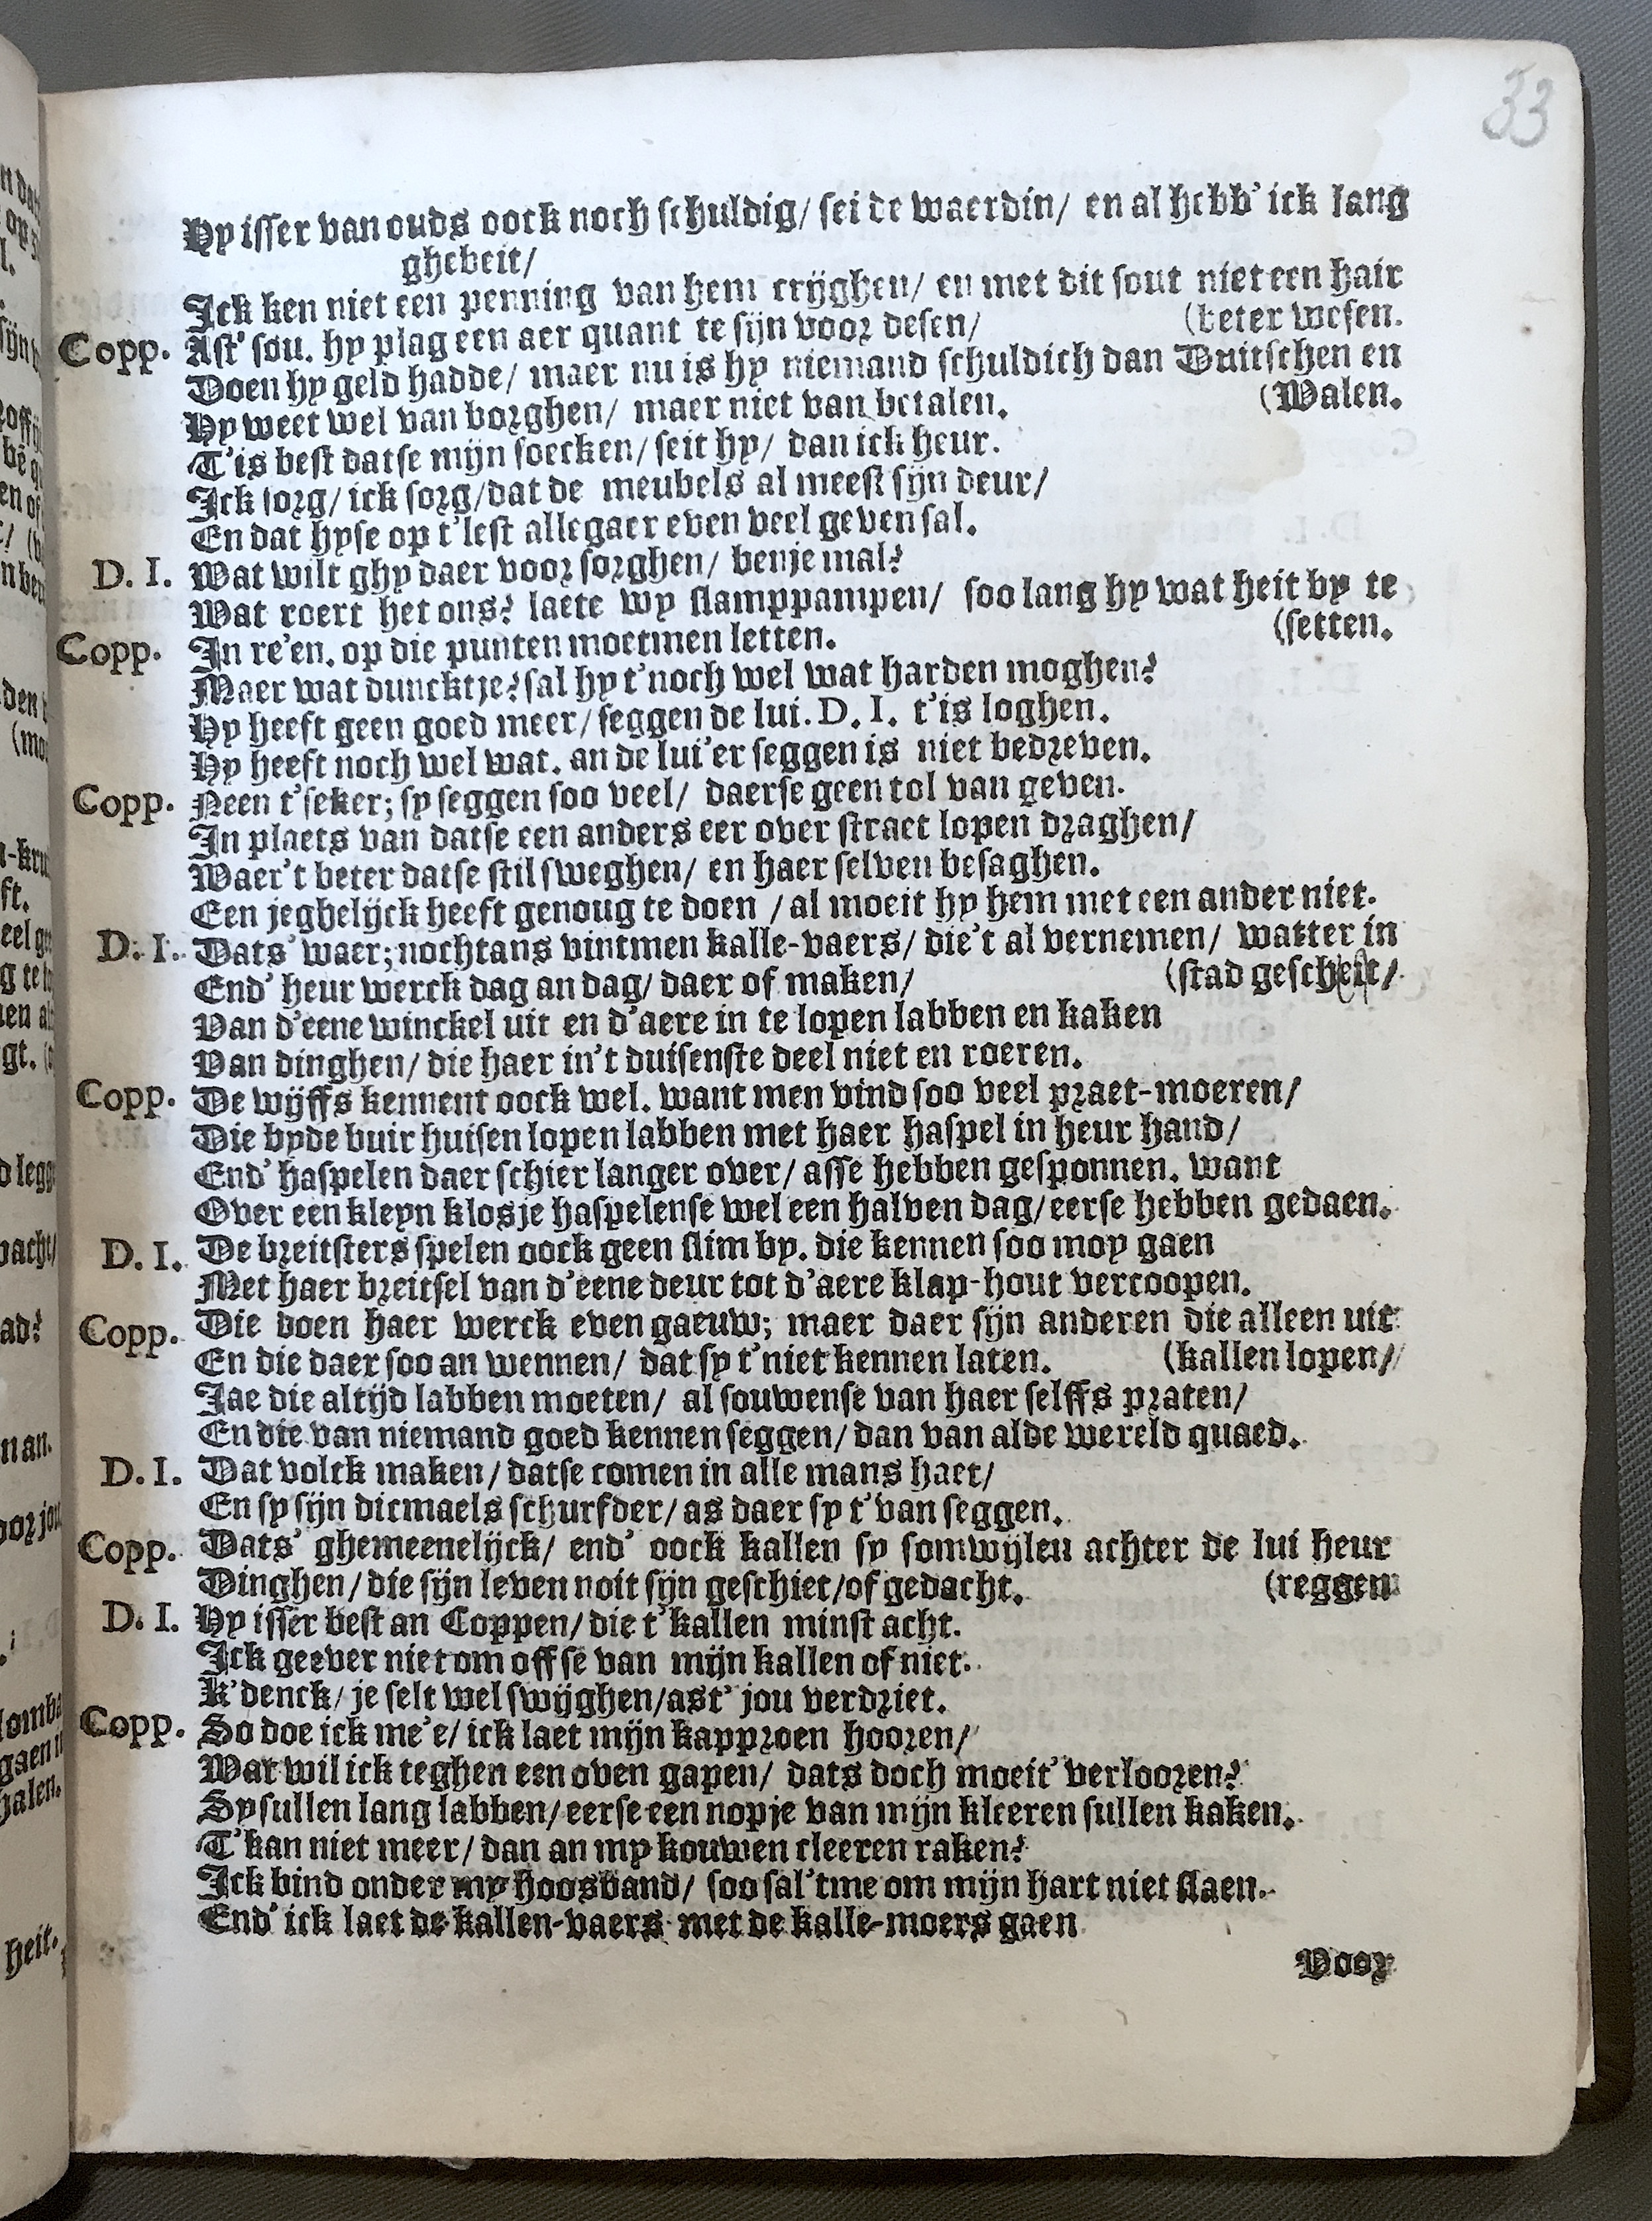 33
Hy isser van ouds oock noch schuldig/ sei de waerdin/ en al hebb' ick lang
ghebeit/
Ick ken niet een penning van hem crijghen/ en met dit sout niet een hair
(beter wesen.
Copp. Ast' sou. hy plag een aer quant te sijn voor desen/
Doen hy geld hadde/ maer nu is hy niemand schuldich dan Duitschen en
(Walen.
Hy weet wel van borghen/ maer niet van betalen.
T'is best datse mijn soecken/ seit hy/ dan ick heur.
Ick sorg/ ick sorg/ dat de meubels al meest sijn deur/
En dat hyse op t'lest allegaer even veel geven sal.
D. I. Wat wilt ghy daer voor sorghen/ benje mal?
Wat roert het ons? laete wy slamppampen/ soo lang hy wat heit by te
(setten.
Copp. In re'en. op die punten moetmen letten.
Maer wat duncktje? sal hy t'noch wel wat harden moghen?
Hy heeft geen goed meer/ seggen de lui. D. I. t'is loghen.
Hy heeft noch wel wat. an de lui'er seggen is niet bedreven.
Copp. Neen t'seker; sy seggen soo veel/ daerse geen tol van geven.
In plaets van datse een anders eer over straet lopen draghen/
Waer't beter datse stil sweghen/ en haer selven besaghen.
Een jeghelijck heeft genoug te doen / al moeit hy hem met een ander niet.
D. I. Dats' waer; nochtans vintmen kalle-vaers/ die't al vernemen/ watter in
(stad gescheit/
End' heur werck dag an dag/ daer of maken/
Van d'eene winckel uit en d'aere in te lopen labben en kaken
Van dinghen/ die haer in't duisenste deel niet en roeren.
Copp. De wijffs kennent oock wel. want men vind soo veel praet-moeren/
Die byde buir huisen lopen labben met haer haspel in heur hand/
End' haspelen daer schier langer over/ asse hebben gesponnen. want
Over een kleyn klosje haspelense wel een halven dag/ eerse hebben gedaen.
D. I. De breitsters spelen oock geen slim by. die kennen soo moy gaen
Met haer breitsel van d'eene deur tot d'aere klap-hout vercoopen.
Copp. Die doen haer werck even gaeuw; maer daer sijn anderen die alleen uit
(kallen lopen/
En die daer soo an wennen/ dat sy t'niet kennen laten.
Jae die altijd labben moeten/ al souwense van haer selffs praten/
En die van niemand goed kennen seggen/ dan van alde wereld quaed.
D. I. Dat volck maken/ datse comen in alle mans haet/
En sy sijn dicmaels schurfder/ as daer sy t'van seggen.
Copp. Dats' ghemeenelijck/ end' oock kallen sy somwijlen achter de lui heur
(reggen
Dinghen/ die sijn leven noit sijn geschiet/ of gedacht.
D. I. Hy isser best an Coppen/ die t'kallen minst acht.
Ick geever niet om off se van mijn kallen of niet.
K'denck/ je selt wel swijghen/ ast' jou verdriet.
Copp. So doe ick me'e/ ick laet mijn kapproen hooren/
Wat wil ick teghen een oven gapen/ dats doch moeit' verlooren?
Sy sullen lang labben/ eerse een nopje van mijn kleeren sullen kaken.
T'kan niet meer/ dan an my kouwen cleeren raken?
Ick bind onder my hoosband/ soo sal'tme om mijn hart niet slaen.
End' ick laet de kallen-vaers met de kalle-moers gaen
Voor